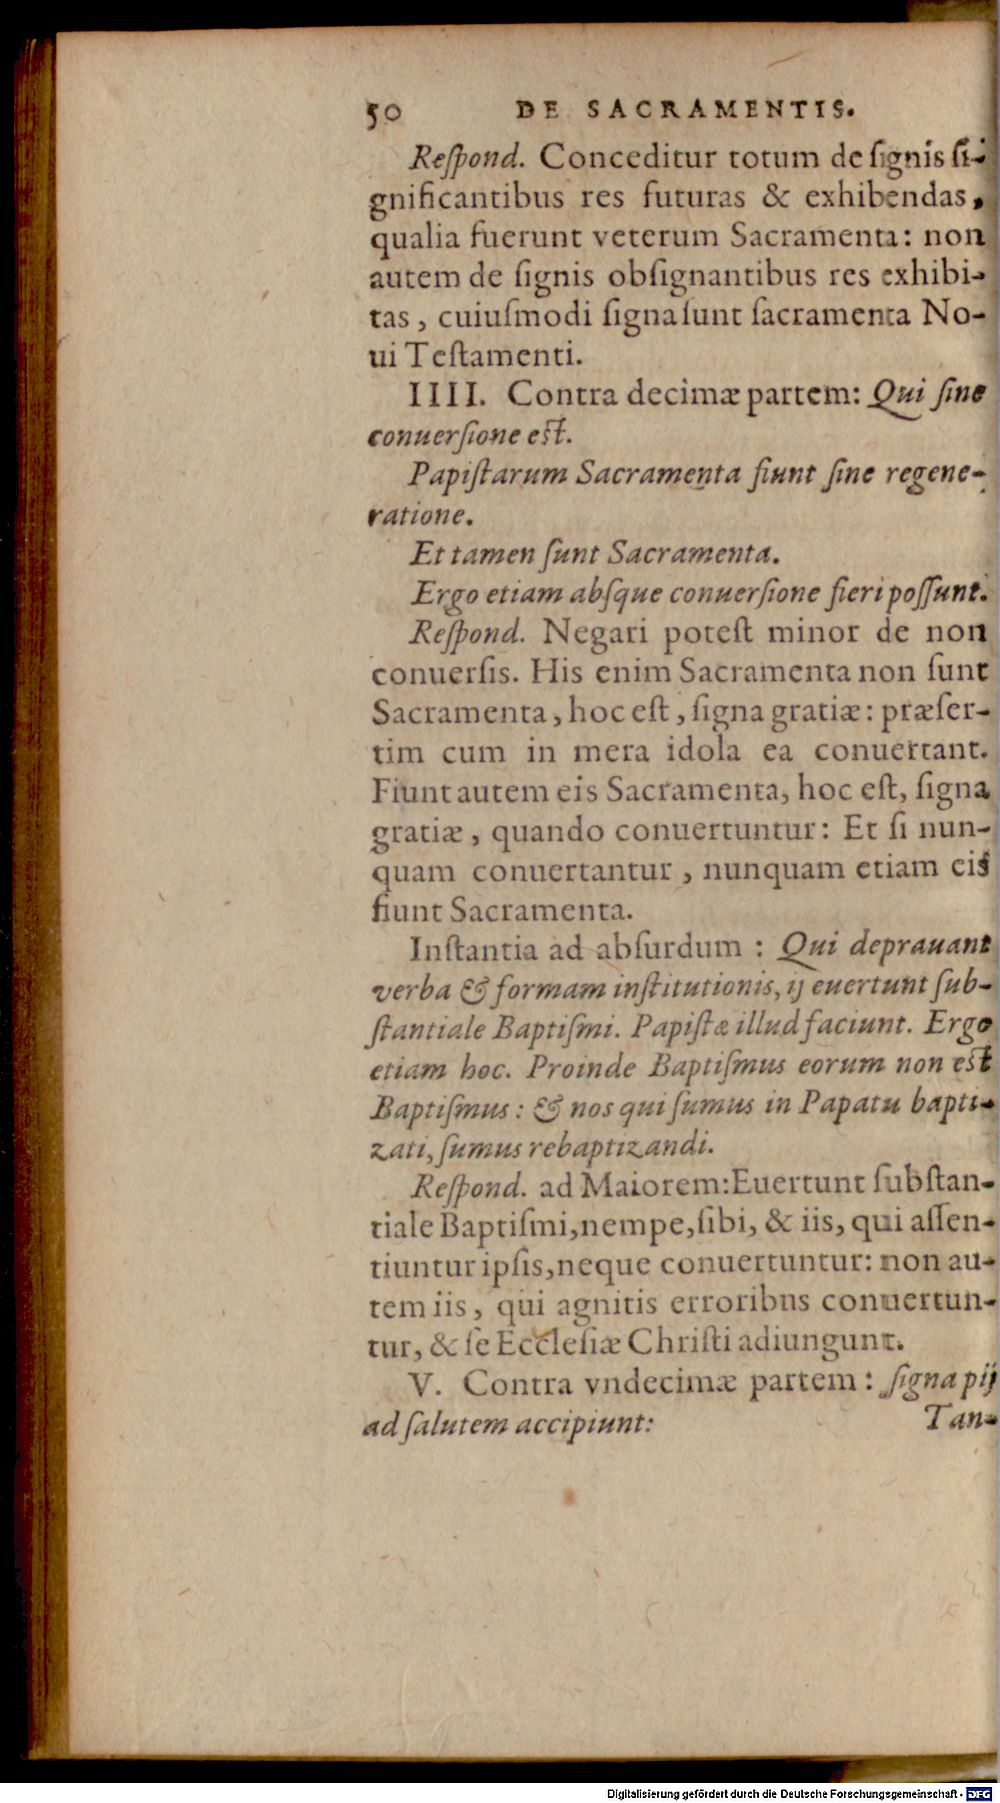 50 DE SACRAMENTIS.
Reſpond. Conceditur totum de ſignis ſi-
gnificantibus res futuras & exhibendas,
qualia fuerunt veterum Sacramenta: non
autem de ſignis obſignantibus res exhibi-
tas, cuiuſmodi ſigna ſunt ſacramenta No-
ui Teſtamenti.
IIII. Contra decimæ partem: Qui ſine
conuerſione eſt.
Papiſtarum Sacramenta fiunt ſine regene-
ratione.
Et tamen ſunt Sacramenta.
Ergo etiam abſque conuerſione fieri poſſunt.
Reſpond. Negari poteſt minor de non
conuerſis. His enim Sacramenta non ſunt
Sacramenta, hoc eſt, ſigna gratiæ: præſer-
tim cum in mera idola ea conuertant.
Fiunt autem eis Sacramenta, hoc eſt, ſigna
gratiæ, quando conuertuntur: Et ſi nun-
quam conuertantur, nunquam etiam eis
fiunt Sacramenta.
Inſtantia ad abſurdum: Qui deprauant
verba & formam inſtitutionis, ij euertunt ſub-
ſtantiale Baptiſmi. Papiſtæ illud faciunt. Ergo
etiam hoc. Proinde Baptiſmus eorum non eſt
Baptiſmus: & nos qui ſumus in Papatu bapti-
zati, ſumus rebaptizandi.
Reſpond. ad Maiorem: Euertunt ſubſtan-
tiale Baptiſmi, nempe, ſibi, & iis, qui aſſen-
tiuntur ipſis, neque conuertuntur: non au-
tem iis, qui agnitis erroribus conuertun-
tur, & ſe Eccleſiæ Chriſti adiungunt.
V. Contra vndecimæ partem: ſigna pij
ad ſalutem accipiunt:
Tan-
Digitalisierung gefördert durch die Deutsche Forschungsgemeinschaft - DFG